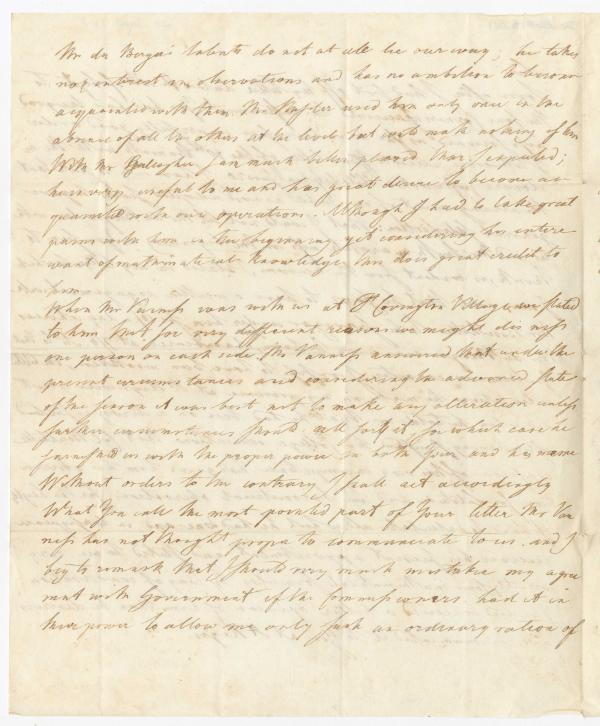 Mr de Berger's talents do not at all lie our way; he takes
no interest in observations and has no ambition to become
acquainted with them. Mr Hassler used him only once in the
absence of all the others at the level but will make nothing of him
With Mr Gallagher I am much better pleased than I expected;
he is very useful to me and has great desire to become ac-
quainted with our operations. Although I had to take great
pains with him in the beginning yet considering his entire
want of mathematical knowledge this does great credit to
him
When Mr Vanness was with us at Ft Covington Village we stated
to him that for very different reasons we might dismiss
one person on each side. Mr Vanness answered that under the
present circumstances and considering the advanced state
of the season it was best not to make any alteration unless
further circumstances should call for it for which case he
furnished us with the proper power in both Your and his name
Without orders to the contrary I shall act accordingly
What You call the most pointed part of Your letter Mr Van
ness has not thought proper to communicate to us. and I
beg to remark that I should very much mistake my agree
ment with Government if the Commissioners had it in
their power to allow me only such an ordinary ration of